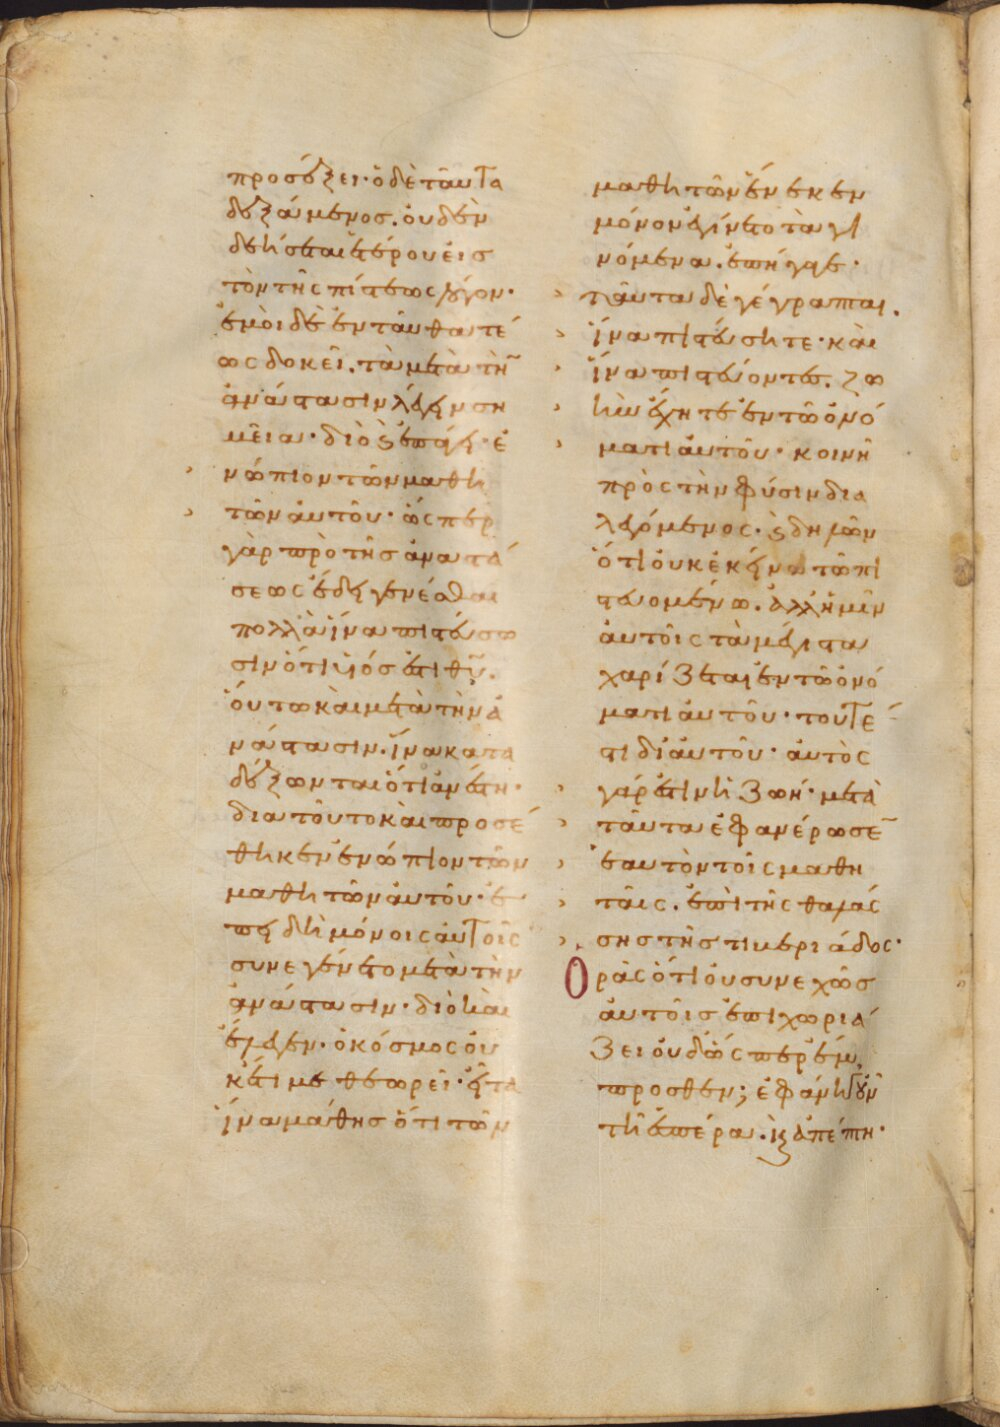 προσέξει· ὁ δὲ ταῦτα
δεξάμενος. οὐδὲν
δεήσεται ἑτέρου εἰς
τὸν τῆς πίστεως λόγον·
ἐμοὶ δὲ ἐνταῦθα τέ
ως δοκεῖ. τὰ μετὰ τὴν
ἀνάστασιν λέγειν ση
μεῖα· διὸ καὶ ἐπάγει· ἐ
νώπιον τῶν μαθη
τῶν αὐτοῦ· ὥσπερ
γὰρ πρὸ τῆς ἀναστά
σεως ἔδει γενέσθαι
πολλὰ ἵνα πιστεύσω
σιν ὅτι υἱός ἐστι θυ.
οὕτω καὶ μετὰ τὴν ἀ
νάστασιν. ἵνα κατα
δέξωνται ὅτι ἀνέστη·
διὰ τοῦτο καὶ προσέ
θηκεν ἐνώπιον τῶν
μαθητῶν αὐτοῦ· ἐ
πειδὴ μόνοις αὐτοῖς
συνεγένετο μετὰ τὴν
ἀνάστασιν· διὸ καὶ
ἔλεγεν· ὁ κόσμος οὐ
κέτι με θεωρεῖ· εἶτα
ἵνα μάθης ὅτι τῶν
μαθητῶν ἕνεκεν
μόνον ἐγίνετο τὰ γι
νόμενα. ἐπήγαγε·
ταῦτα δὲ γέγραπται.
ἵνα πιστεύσητε· καὶ
ἵνα πιστεύοντες. ζω
ὴν ἔχητε ἐν τῶ ὀνό
ματι αὐτοῦ· κοινῆ
πρὸς τὴν φύσιν δια
λεγόμενος· καὶ δηλῶν
ὅτι οὐκ ἐκείνω τῶ πι
στευομένω. ἀλλ' ἡμῖν
αὐτοῖς τὰ μέγιστα
χαρίζεται ἐν τῶ ὀνό
ματι αὐτοῦ· τουτέ
στι δι' αὐτοῦ· αὐτὸς
γάρ ἐστιν ἡ ζωή· μετὰ
ταῦτα ἐφανέρωσεν
ἑαυτὸν τοῖς μαθη
ταῖς. ἐπὶ τῆς θαλάς
σης τῆς τιβεριάδος·
Ὁρᾶς ὅτι οὐ συνεχῶς
αὐτοῖς ἐπιχωριά
ζει οὐδ' ὥσπερ ἔμ
προσθεν; ἐφάνη γοῦν
τῆ ἑσπέρα. καὶ ἀπέπτη·